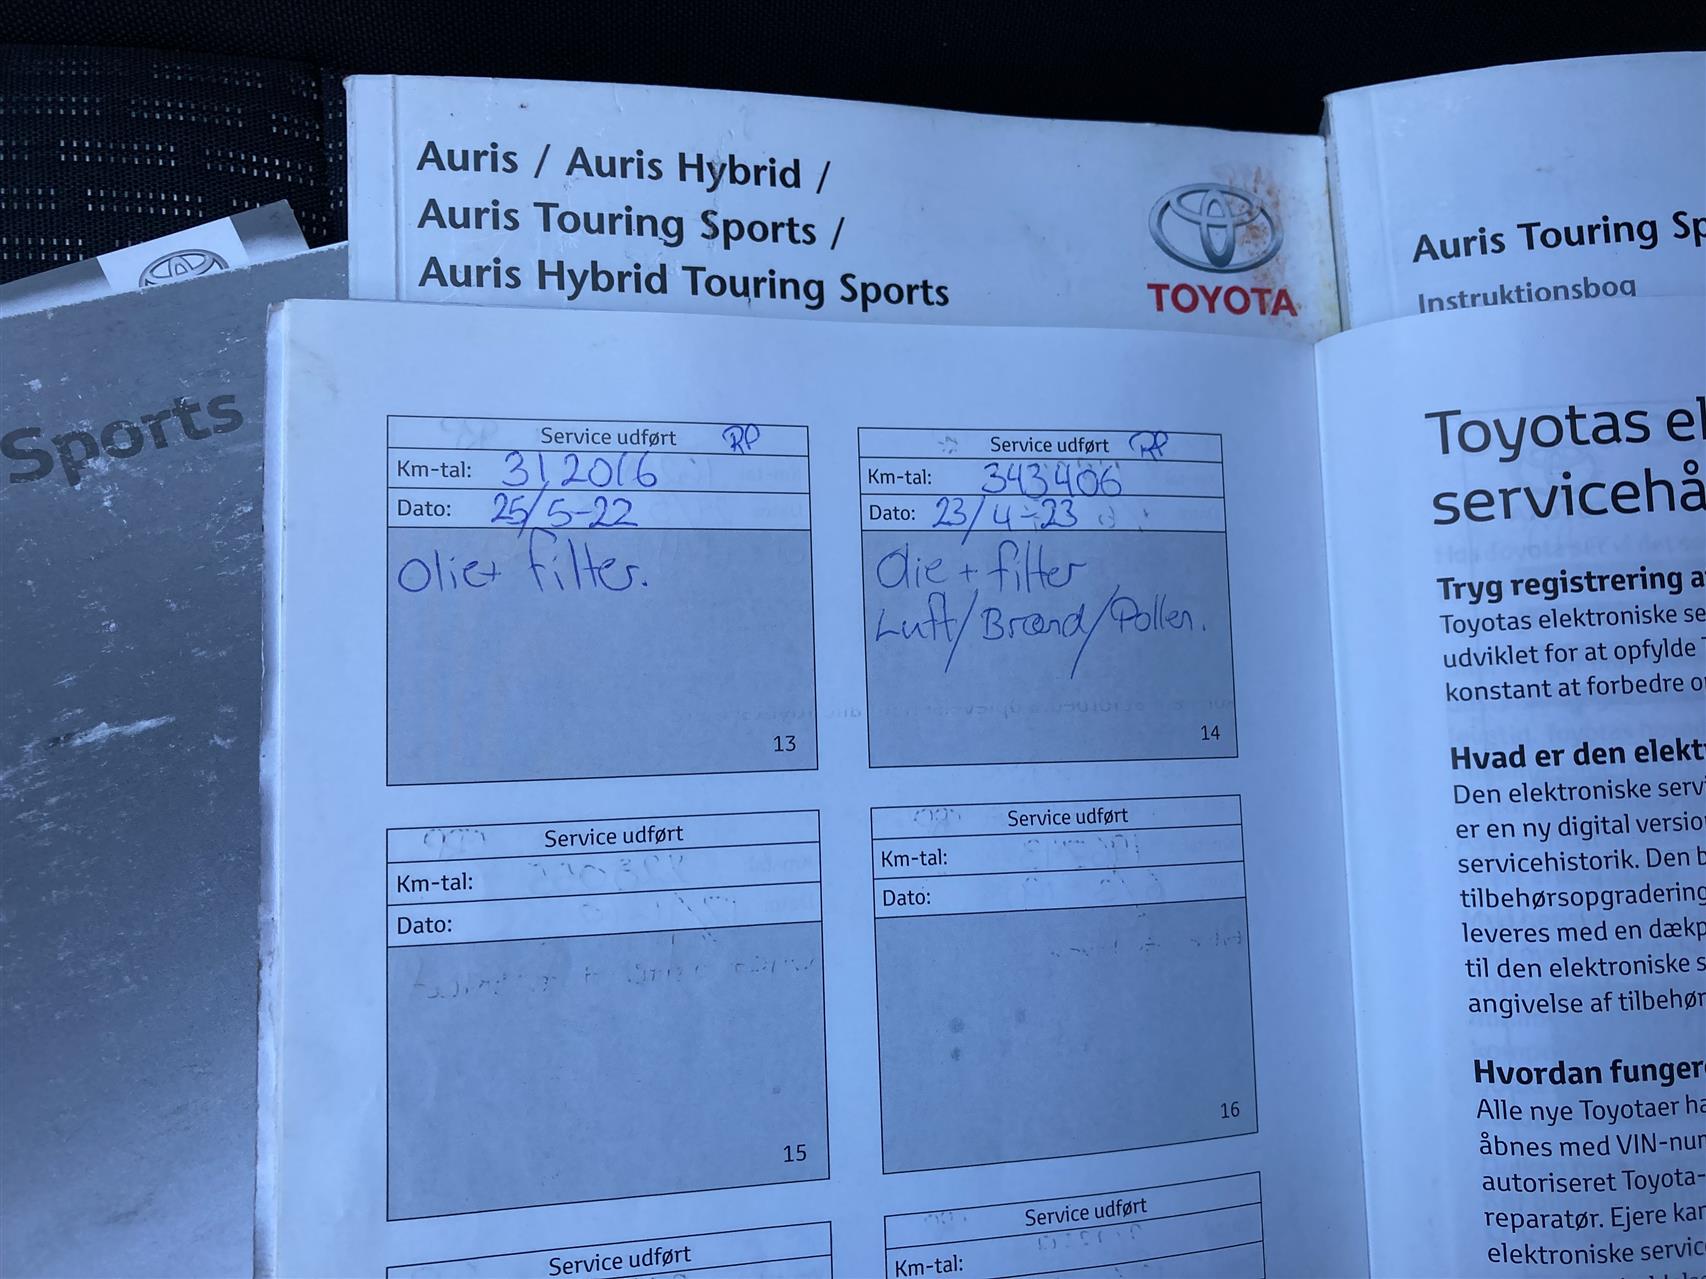 Auris / Auris Hybrid /
Auris Touring Sports /
Auris Hybrid Touring Sports
TOYOTA
Auris Touring Sp
Instruktionsbog
Sports
Service udført RP
Km-tal: 312016
Dato: 25/5-22
Olie+ filter.
13
Service udført RP
Km-tal: 343406
Dato: 23/4-23
Olie + filter
Luft/Brænd/Pollen.
14
Service udført
Km-tal:
Dato:
15
Service udført
Km-tal:
Dato:
16
Service udført
Service udført
Km-tal:
Toyotas el
servicehå
Tryg registrering a
Toyotas elektroniske se
udviklet for at opfylde
konstant at forbedre o
Hvad er den elekt
Den elektroniske servi
er en ny digital versio
servicehistorik. Den b
tilbehørsopgradering
leveres med en dækp
til den elektroniske s
angivelse af tilbehør
Hvordan funger
Alle nye Toyotaer ha
åbnes med VIN-num
autoriseret Toyota-
reparatør. Ejere kan
elektroniske servic